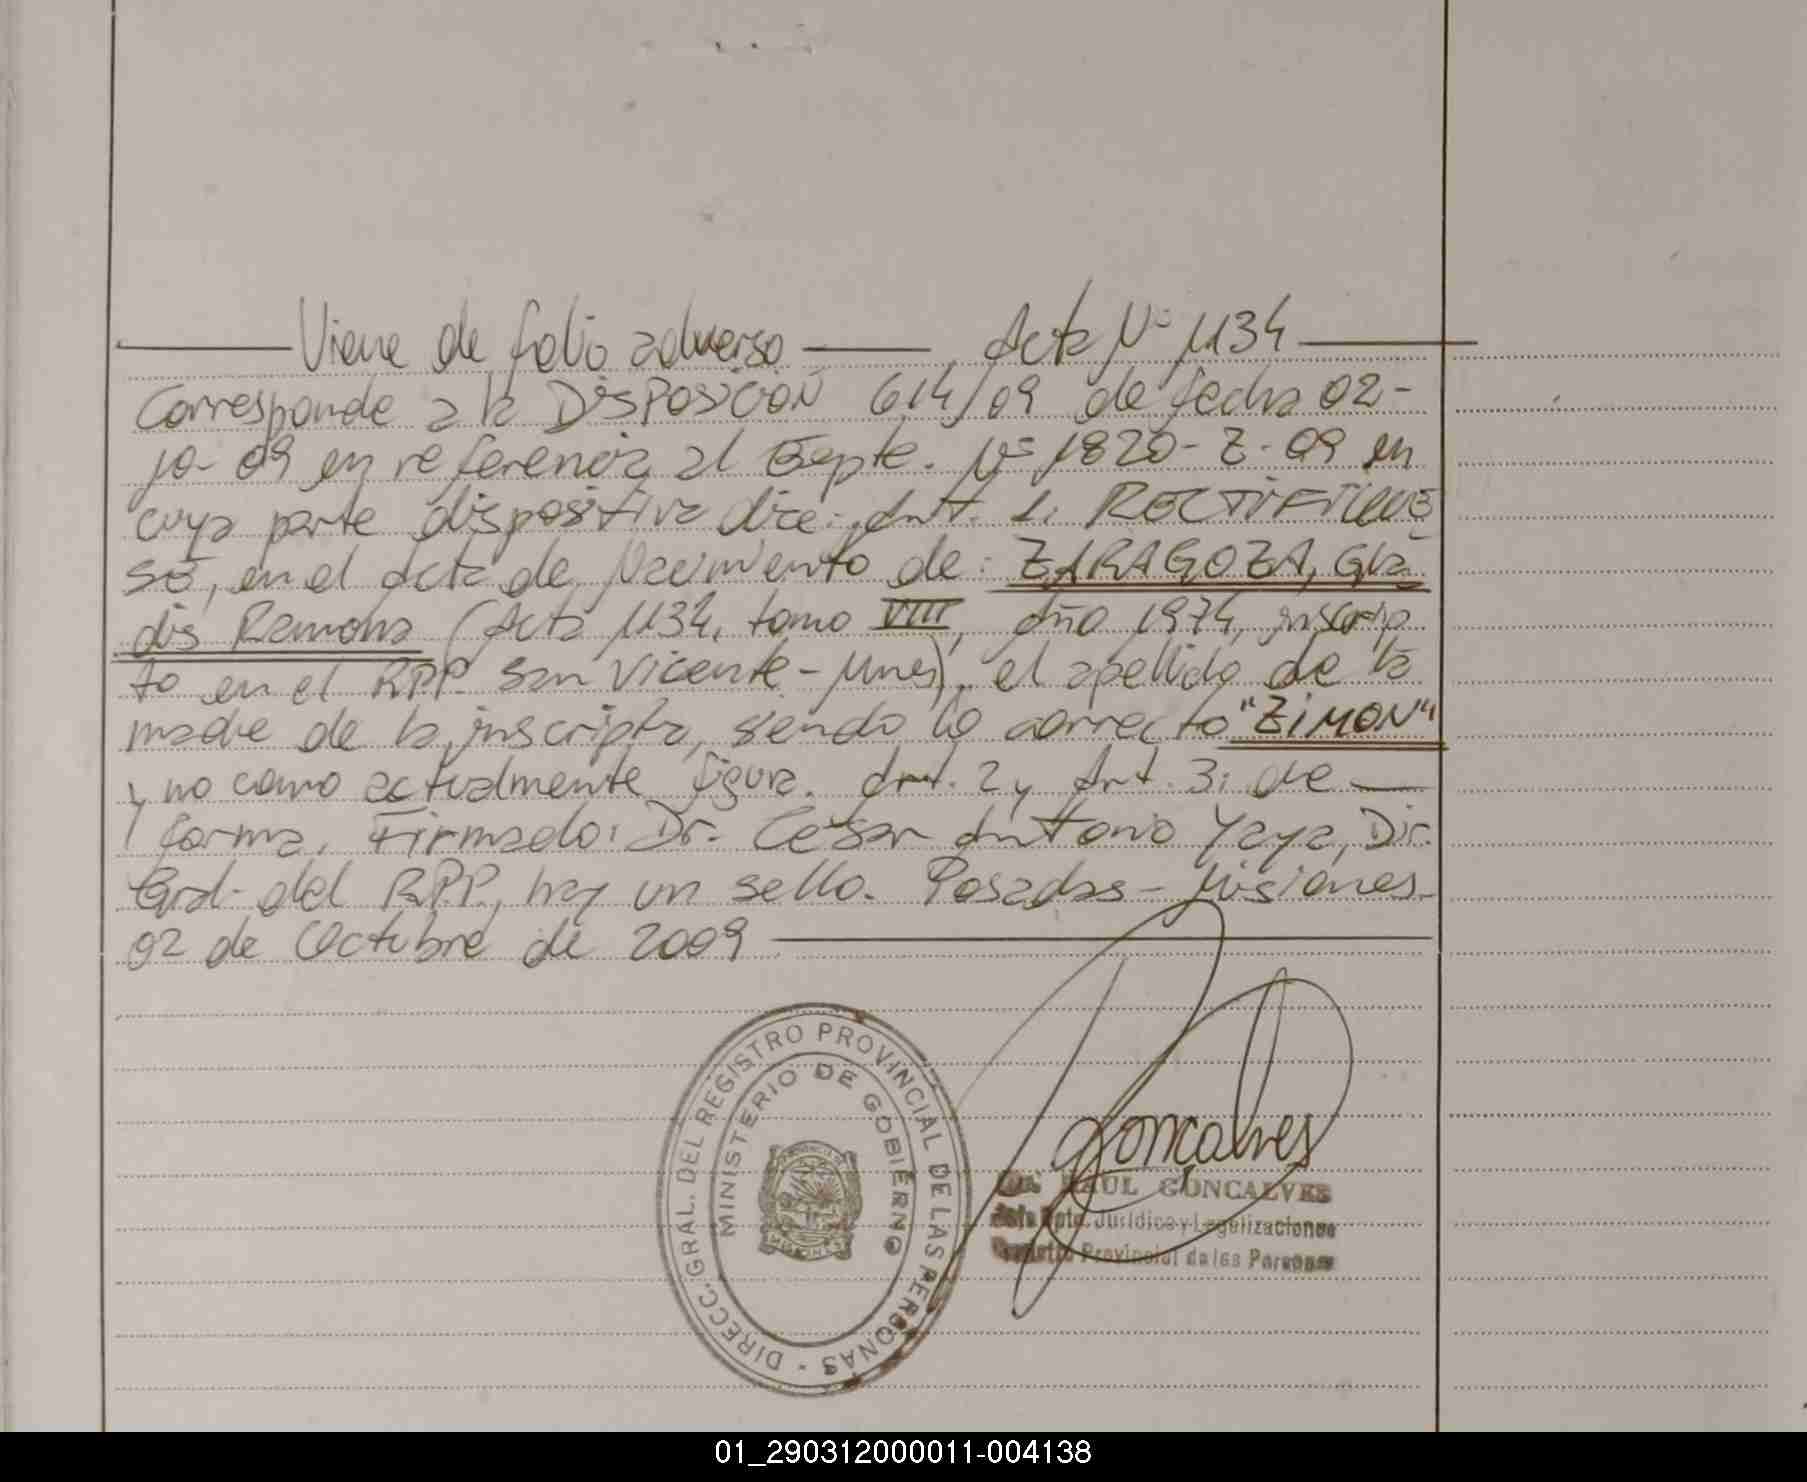 Viene de folio adverso Acta Nº 1134
Corresponde a la DISPOSICIÓN 614/09 de fecha 02-
10-09 en referencia al Expte. Nº 1820-Z-09 en
cuya parte dispositiva dice: Art. 1: RECTIFIQUE
SE, en el Acta de Nacimiento de: ZARAGOZA, Gla
dis Ramona (Acta 1134, tomo VIII, Año 1974, inscrip
to en el RPP. San Vicente-Mnes), el apellido de la
madre de la inscripta, siendo lo correcto "ZIMON"
y no como actualmente figura. Art. 2 y Art. 3: de
forma. Firmado: Dr. César Antonio Yaya, Dir.
Gral. del R.P.P., hay un sello. Posadas - Misiones
02 de Octubre de 2009
DIRECC. GRAL. DEL REGISTRO PROVINCIAL DE LAS PERSONAS -
MINISTERIO DE GOBIERNO
MISIONES
Goncalves
RAUL GONCALVES
Jefe Dpto. Jurídico y Legalizaciones
Registro Provincial de las Personas
01_290312000011-004138